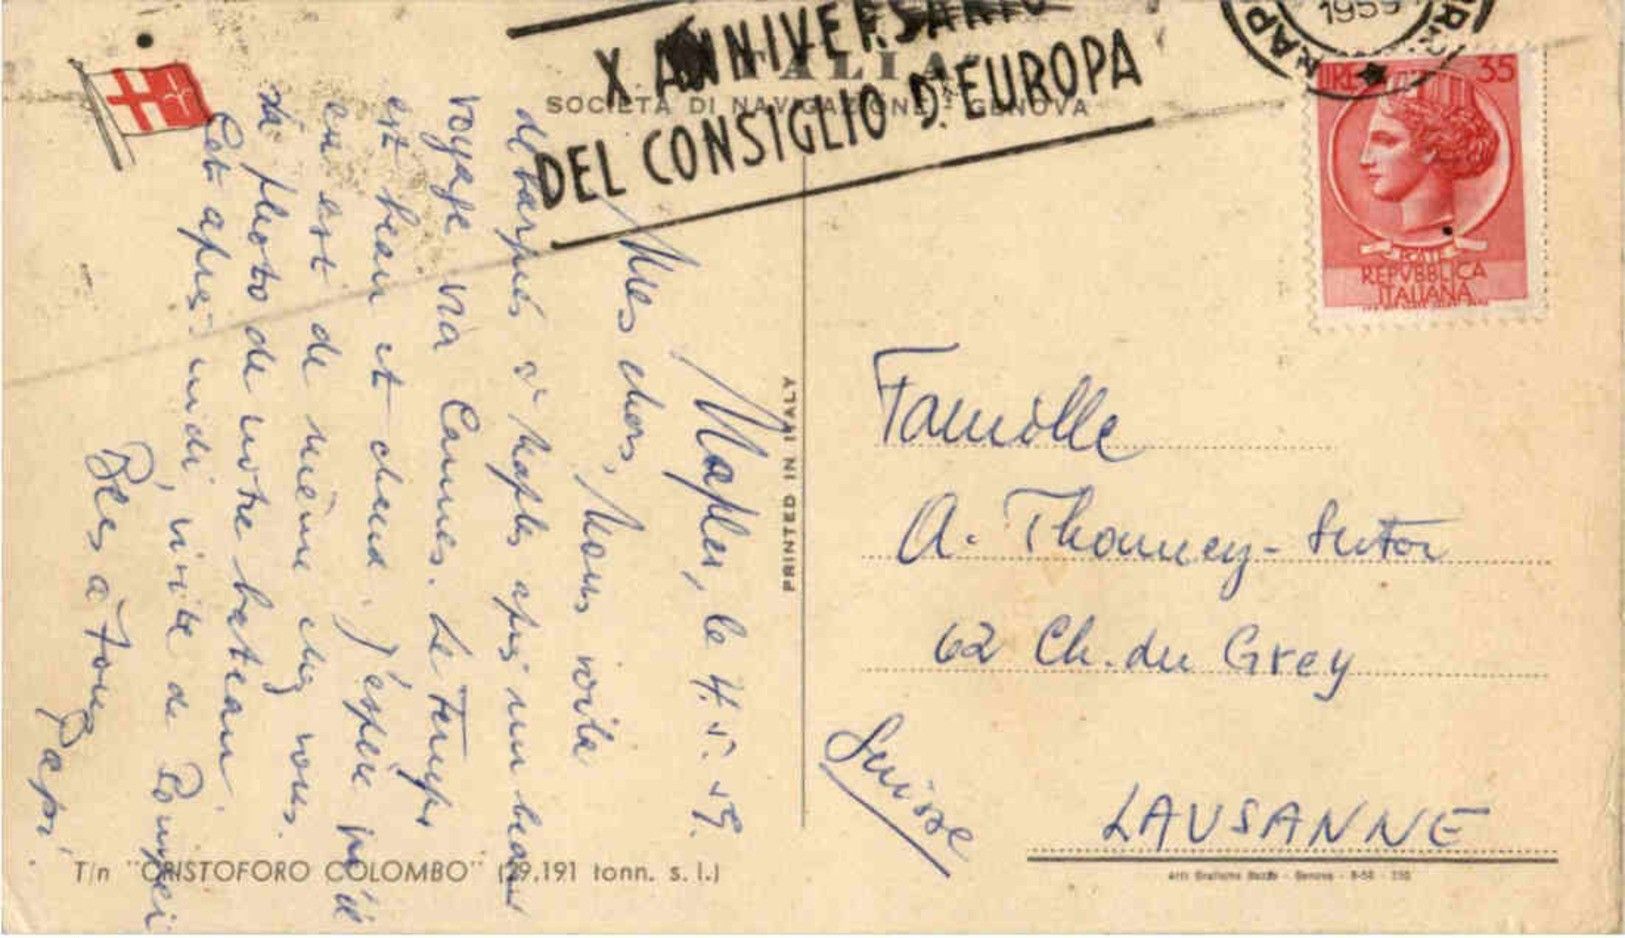 X ANNIVERSARIO
DEL CONSIGLIO D'EUROPA
ITALIA
SOCIETÀ DI NAVIGAZIONE - GENOVA
NAP
1959
LIRE 35
REPVBBLICA
ITALIANA
Naples, le 4.5.59.
Mes chers, Nous voila
debarqués à Naples après un beau
voyage via Cannes. Le temps
est beau et chaud. J'espère qu'il
en est de même chez vous.
La photo de notre bateau.
Cet après-midi, visite de Pompei
Bees a tous
Papi.
PRINTED IN ITALY
Famille
A. Thonney-Sutor
62 Ch. du Grey
LAUSANNE
Suisse
T/n "CRISTOFORO COLOMBO" (29,191 tonn. s. l.)
Arti Grafiche - Genova